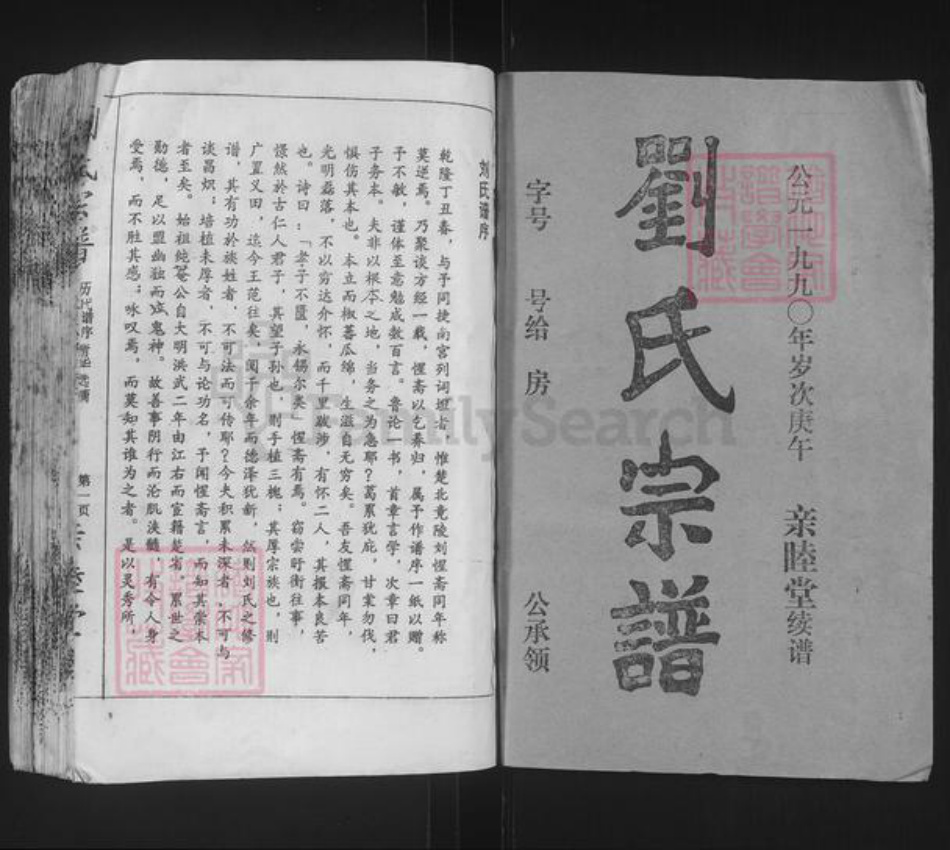 公元一九九〇年岁次庚午 亲睦堂续谱
劉氏宗譜
字号 号给 房 公承领
刘氏谱序
乾隆丁丑春，与予同捷南宫列词垣者，惟楚北竟陵刘惺斋同年称
莫逆焉。乃聚谈方经一载，惺斋以乞养归，属予作谱序一纸以赠。
予不敏，谨体至意勉成数百言。鲁论一书，首章言学，次章曰君
子务本。夫非以根本之地，当务之为急耶？葛累犹庇，甘棠勿伐，
惧伤其本也。本立而椒蓄瓜绵，生滋自无穷矣。吾友惺斋同年，
光明磊落，不以穷达介怀，而千里跋涉，有怀二人，其报本良苦
也。诗曰：「孝子不匮，永锡尔类」惺斋有焉。窃尝盱衡往事，
憬然於古仁人君子，其望子孙也，则手植三槐；其厚宗族也，则
广置义田，迄今王范往矣，阅千余年而德泽犹新，然则刘氏之修
谱，其有功於族姓者，不可法而可传耶？今夫积累未深者，不可与
谈昌炽；培植未厚者，不可与论功名，予闻惺斋言，而知其崇本
者至矣。始祖纯菴公自大明洪武二年由江右而宦籍楚省，累世之
勤德，足以盟幽独而质鬼神。故善事阴行而沦肌浃髓，有令人身
受焉，而不胜其感；咏叹焉，而莫知其谁为之者。是以灵秀所，
氏宗譜 历代谱序 第一页
FamilySearch